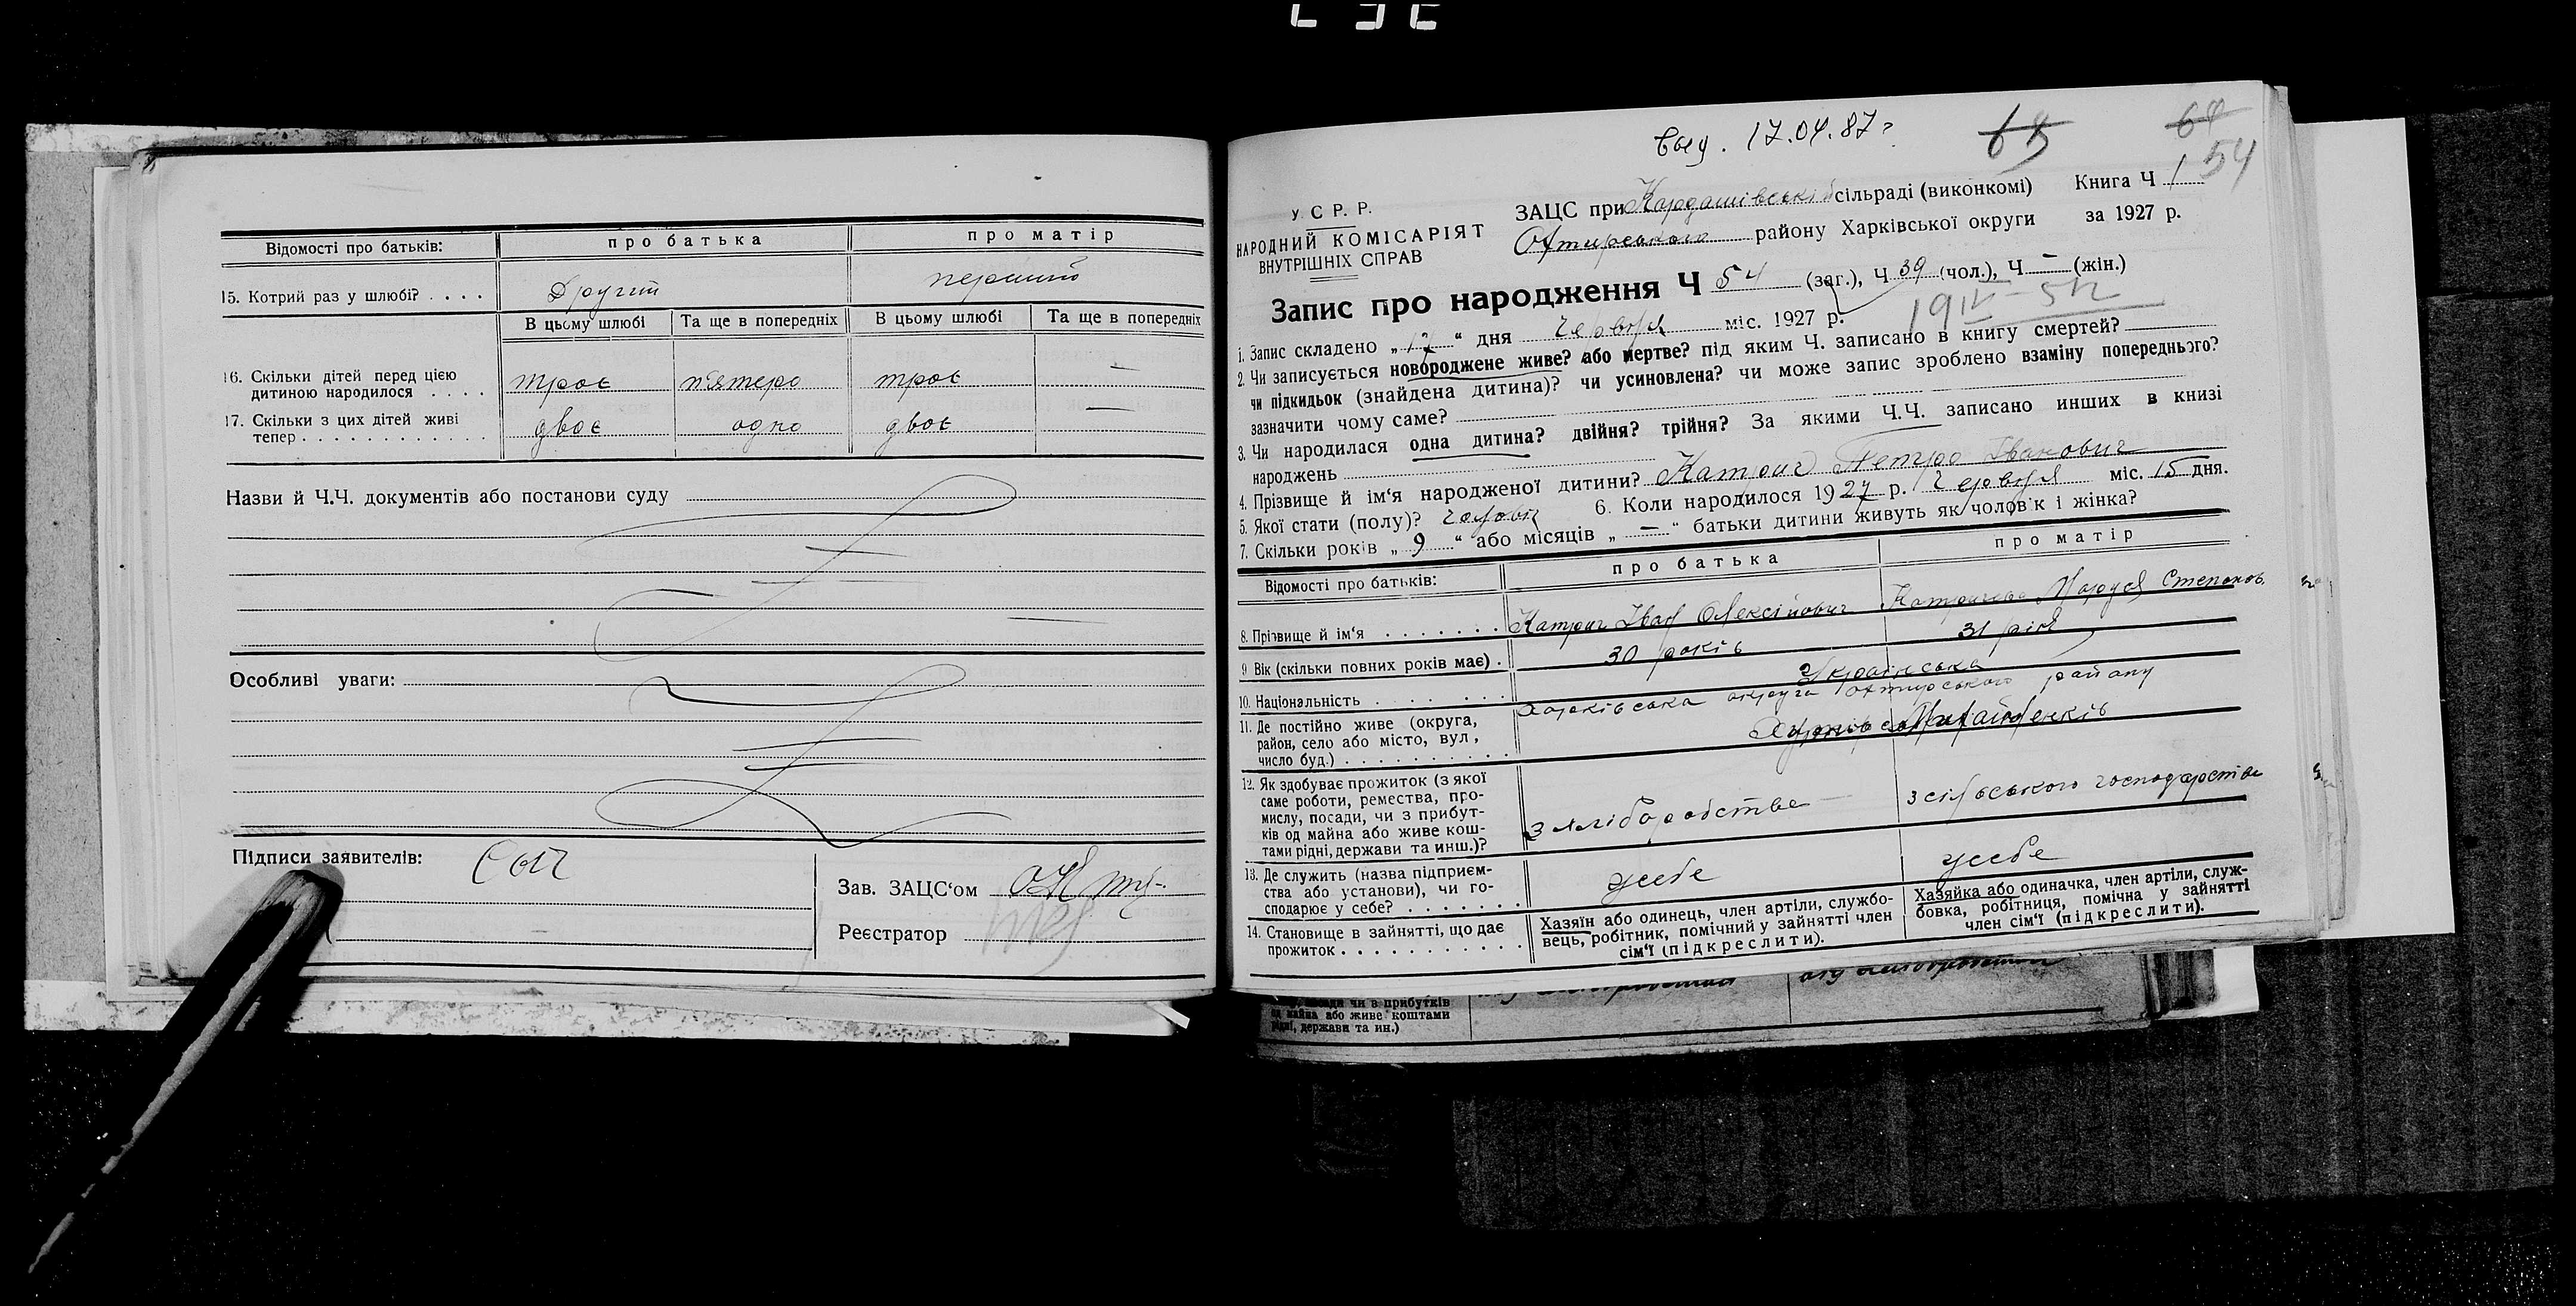 Відомості про батьків: про батька про матір
15. Котрий раз у шлюбі? . . . . Другий перший
В цьому шлюбі Та ще в попередніх В цьому шлюбі Та ще в попередніх
16. Скільки дітей перед цією
дитиною народилося . . . . троє п'ятеро троє —
17. Скільки з цих дітей живі
тепер . . . . . . . . . . . . двоє одно двоє —
Назви й Ч.Ч. документів або постанови суду
Особливі уваги:
Підписи заявителів:
Зав. ЗАЦС'ом
Реєстратор
17.04.87г
68
64
54
У. С. Р. Р.
НАРОДНИЙ КОМІСАРІЯТ
ВНУТРІШНІХ СПРАВ
ЗАЦС при Кардашівській сільраді (виконкомі) Книга Ч 1
Охтирського району Харківської округи за 1927 р.
Запис про народження Ч 54 (заг.), Ч 39 (чол.), Ч — (жін.)
1. Запис складено „17“ дня червня міс. 1927 р.
2. Чи записується новороджене живе? або мертве? під яким Ч. записано в книгу смертей?
чи підкидьок (знайдена дитина)? чи усиновлена? чи може запис зроблено взаміну попереднього?
зазначити чому саме?
3. Чи народилася одна дитина? двійня? трійня? За якими Ч.Ч. записано инших в книзі
народжень
4. Прізвище й ім'я народженої дитини? Катрич Петро Іванович
5. Якої стати (полу)? чоловіч 6. Коли народилося 1927 р. червня міс. 15 дня.
7. Скільки років „9“ або місяців „—“ батьки дитини живуть як чоловік і жінка?
Відомості про батьків: про батька про матір
8. Прізвище й ім'я . . . . . . . Катрич Іван Олексійович Катричева Маруся Степанов.
9 Вік (скільки повних років має) . 30 років 31 рік
10. Національність . . . . . . Українська
11. Де постійно живе (округа,
район, село або місто, вул,
число буд.) . . . . . . . . . . Харківська округа Охтирського району
Хутір Михайленків
12. Як здобуває прожиток (з якої
саме роботи, ремества, про-
мислу, посади, чи з прибут-
ків од майна або живе кош-
тами рідні, держави та инш.)? з хліборобства з сільського господарства
13. Де служить (назва підприєм-
ства або установи), чи го-
сподарює у себе? . . . . . . . у себе у себе
14. Становище в зайнятті, що дає
прожиток . . . . . . . . . . .
Хазяїн або одинець, член артіли, службо-
вець, робітник, помічний у зайнятті член
сім'ї (підкреслити).
Хазяйка або одиначка, член артіли, служ-
бовка, робітниця, помічна у зайнятті
член сім'ї (підкреслити).
чи в прибутків
майна або живе коштами
рідні, держави та ин.)